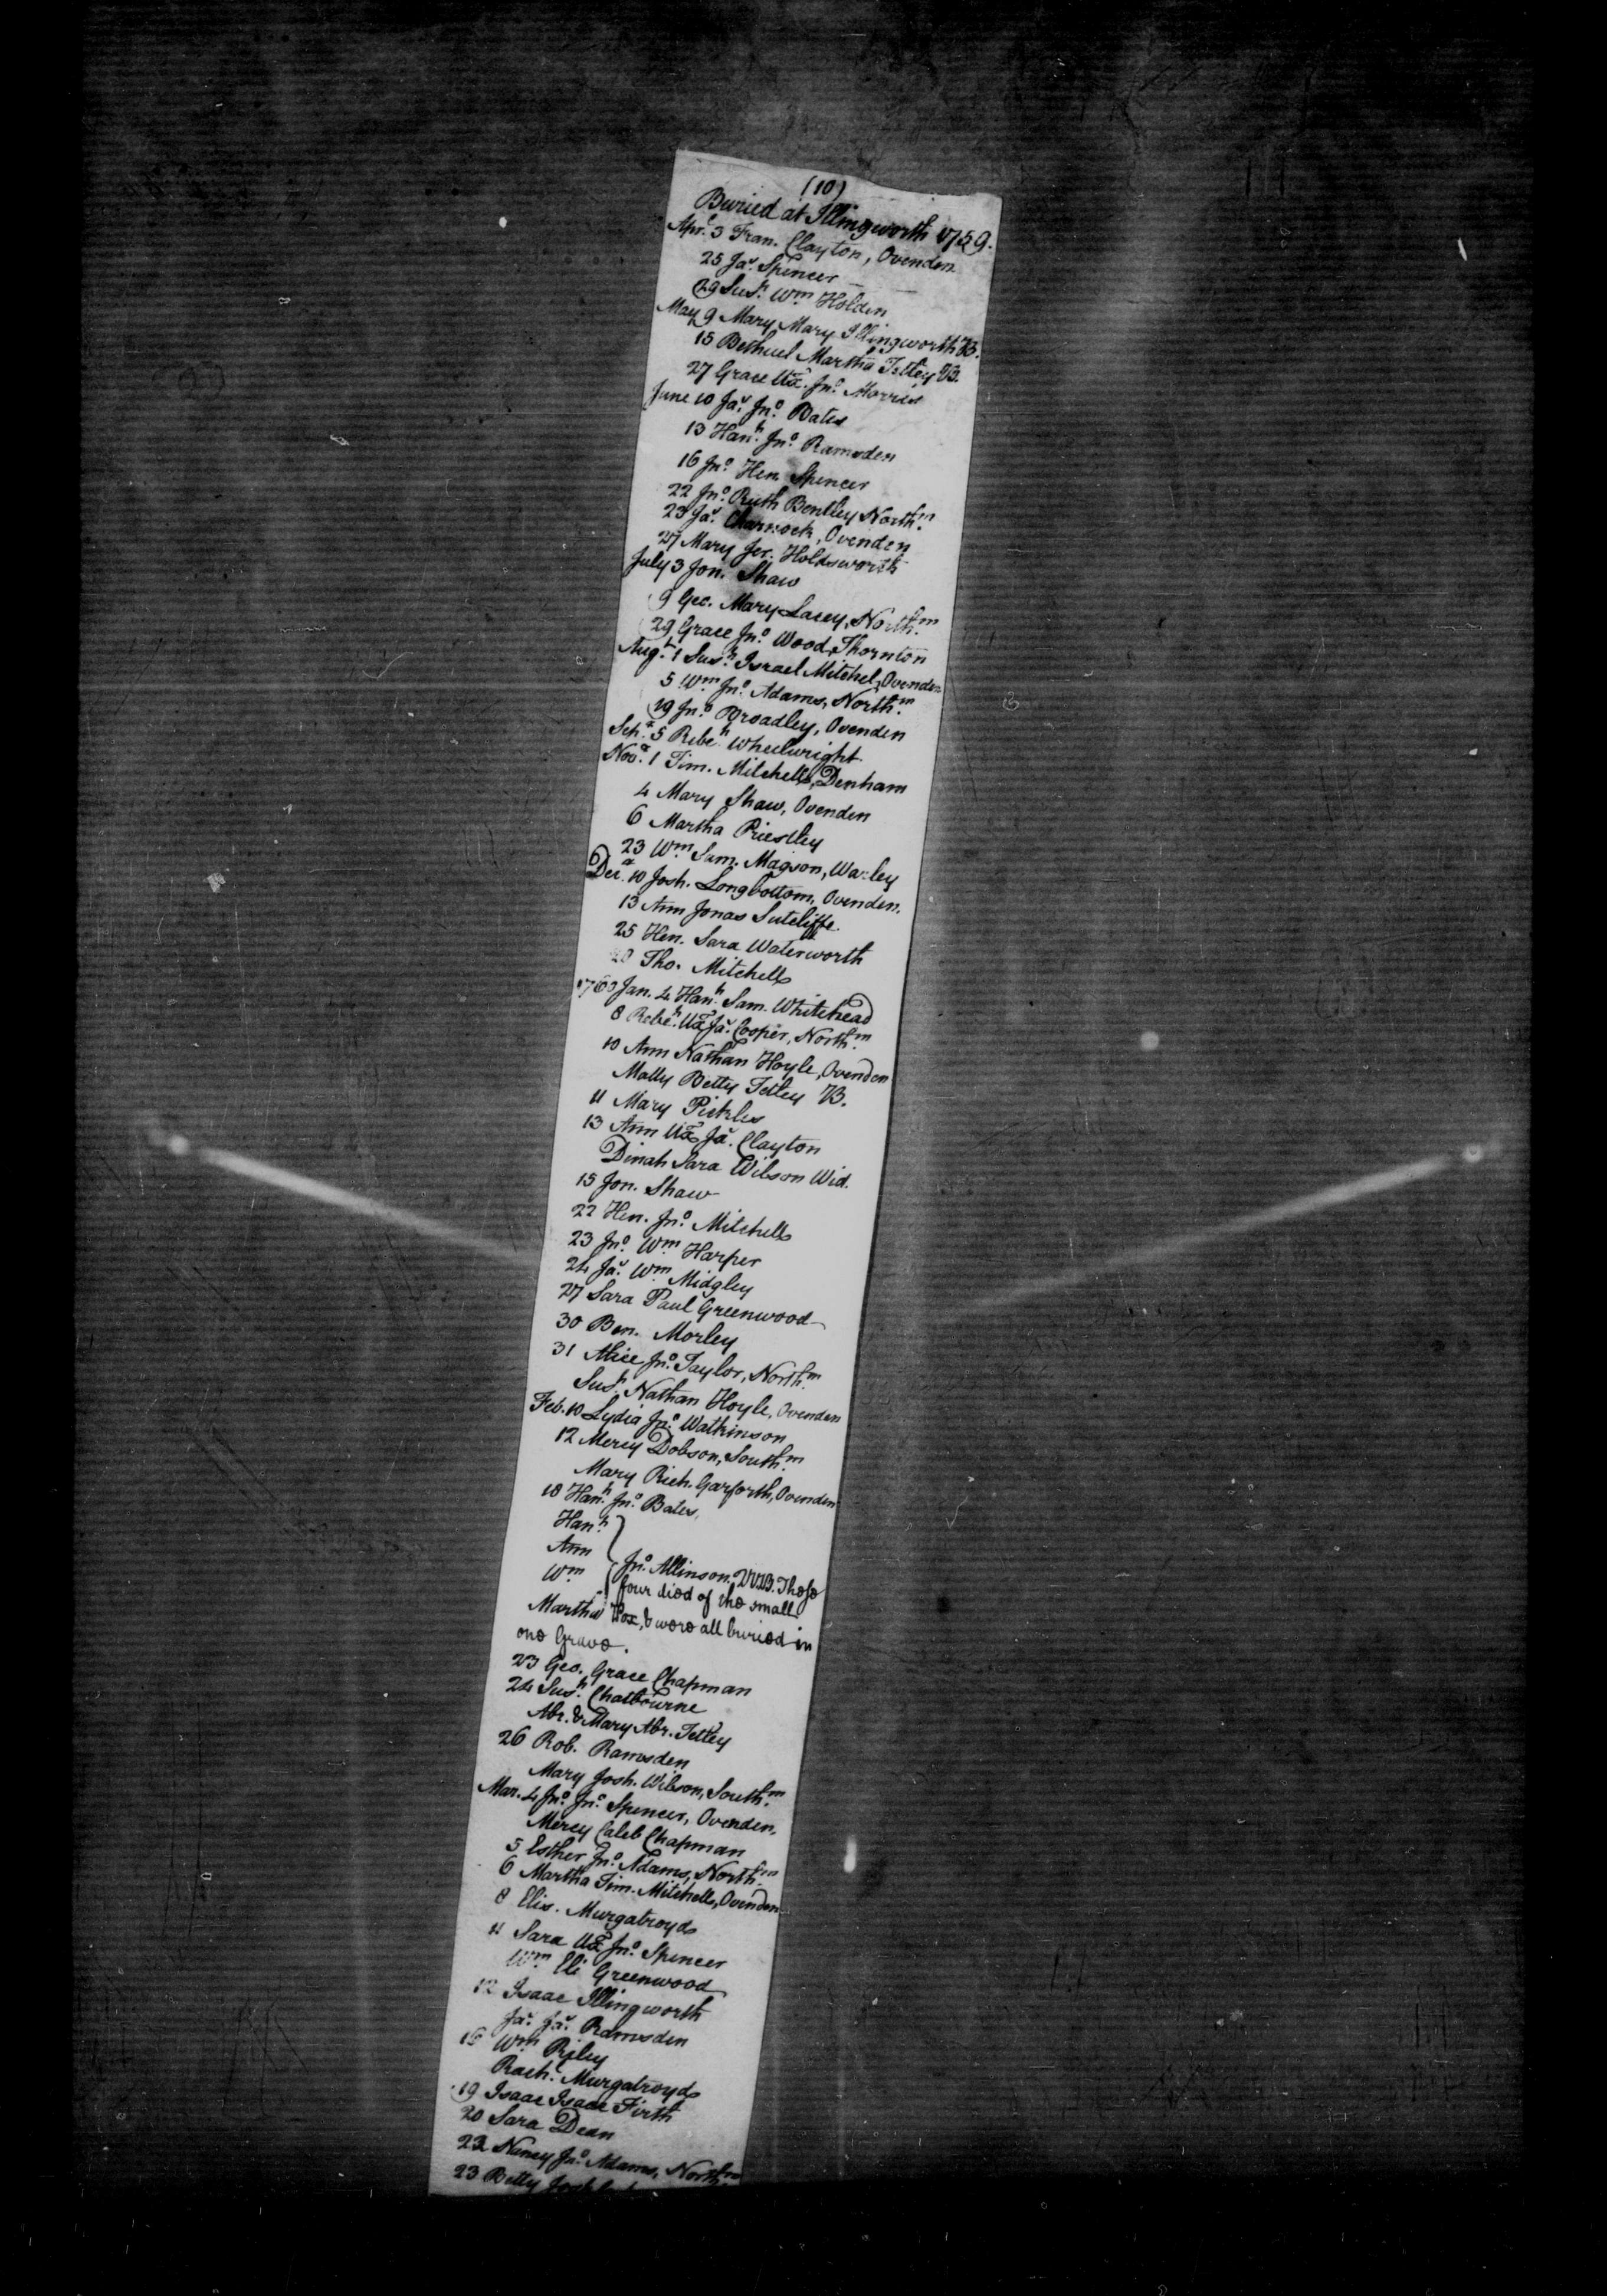 (10)
Buried at Illingworth 1759.
Apr.l 3 Fran. Clayton, Ovenden
25 Ja.s Spencer
29 Sus.h Wm Holden
May 9 Mary Mary Illingworth B.
15 Bethuel Martha Tetley B.
27 Grace Ux. Jn.o Morris
June 10 Ja.s Jn.o Bates
13 Han.h Jn.o Ramsden
16 Jn.o Hen. Spencer
22 Jn.o Ruth Bentley North.m
23 Ja.s Charnock, Ovenden
27 Mary Jer. Holdsworth
July 3 Jon. Shaw
9 Geo. Mary Lacey, North.m
29 Grace Jn.o Wood, Thornton
Aug.t 1 Sus.h Israel Mitchel, Ovenden
5 Wm Jn.o Adams, North.m
19 Jn.o Broadley, Ovenden
Sep.r 5 Rebe.h Wheelwright
Nov.r 1 Tim. Mitchell, Denham
4 Mary Shaw, Ovenden
6 Martha Priestley
23 Wm Sam. Magson, Warley
Dec.r 10 Josh. Longbottom, Ovenden.
13 Ann Jonas Sutcliffe.
25 Hen. Sara Waterworth
28 Tho. Mitchell
1760 Jan. 4 Han.h Sam. Whitehead
8 Rebe.h Ux Ja.s Cooper, North.m
10 Ann Nathan Hoyle, Ovenden
Mally Betty Tetley B.
11 Mary Pickles
13 Ann Ux Ja.s Clayton
Dinah Sara Wilson Wid.
15 Jon. Shaw
22 Hen. Jn.o Mitchell
23 Jn.o Wm Harper
24 Ja.s Wm Midgley
27 Sara Paul Greenwood
30 Ben. Morley
31 Alice Jn.o Taylor, North.m
Sus.h Nathan Hoyle, Ovenden
Feb. 10 Lydia Jn.o Watkinson
12 Mercy Dobson, South.m
Mary Rich. Garforth, Ovenden
18 Han.h Jn.o Bates,
Han.h
Ann
Wm Jn.o Allinson, These
four died of the small
Martha Pox, & were all buried in
one Grave.
23 Geo. Grace Chapman
24 Sus.h Chatbourne
Abr. & Mary Abr. Tetley
26 Rob. Ramsden
Mary Josh. Wilson, South.m
Mar. 4 Jn.o Jn.o Spencer, Ovenden,
Mercy Caleb Chapman
5 Esther Jn.o Adams, North.m
6 Martha Tim. Mitchell, Ovenden
8 Elis. Murgatroyd
11 Sara Ux Jn.o Spencer
Wm Eli Greenwood
12 Isaac Illingworth
Ja.s Ja.s Ramsden
16 Wm Riley
Rach. Murgatroyd
19 Isaac Isaac Firth
20 Sara Dean
22 Nancy Jn.o Adams, North.m
23 Betty